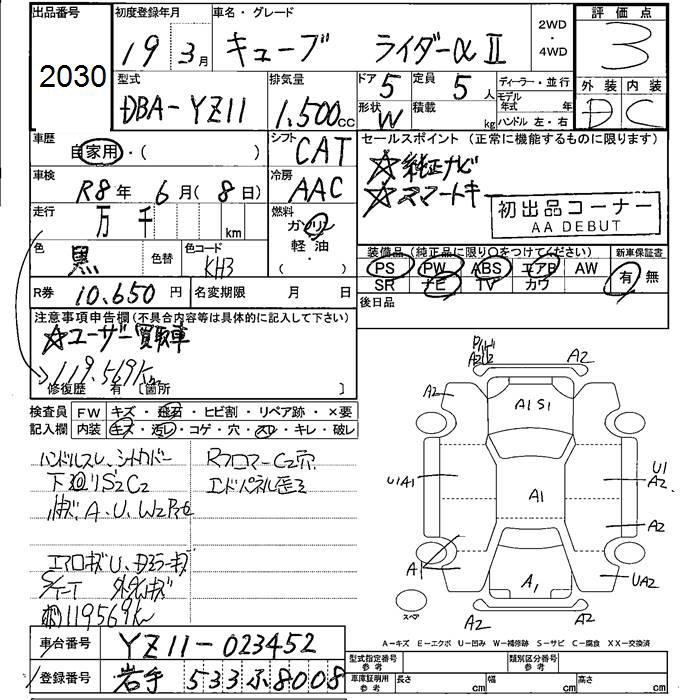 出品番号 初度登録年月 車名・グレード 2WD・4WD 評価点
2030 19 3月 キューブ ライダーαⅡ 3
型式 排気量 ドア 5 定員 5人 ディーラー・並行 外装 内装
DBA-YZ11 1,500cc 形状 W 積載 kg モデル年式 年 ハンドル 左・右 D C
車歴 自家用・( ) シフト CAT セールスポイント (正常に機能するものに限ります)
☆純正ナビ
車検 R8年 6月(8日) 冷房 AAC ☆スマートキー
初出品コーナー
AA DEBUT
走行 万 千 km 燃料 ガソリン 軽油 ( ・ )
色 黒 色替 色コード KH3
装備品 (純正品に限り○をつけてください) 新車保証書
PS PW ABS エアB AW 有・無
SR ナビ TV カワ
R券 10,650円 名変期限 月 日 後日品
注意事項申告欄(不具合内容等は具体的に記入して下さい)
☆ユーザー買取車
119,569km
修復歴 有 〔箇所 〕
検査員 FW キズ・飛石・ヒビ割・リペア跡・×要
記入欄 内装 キズ・汚レ・コゲ・穴・スレ・キレ・破レ
ハンドルスレ、シートカバー RフロアーC2穴
下廻りS2C2 エンドパネル歪み
A、U、W2
エアロキズU、ドアミラーキズ
119569km
A2
A2
A2 A1S1 A2
U1A1 A1 U1
A2
A2
A1 A1 UA2
スペア A2 A2
A-キズ E-エクボ U-凹み W-補修跡 S-サビ C-腐食 XX-交換済
車台番号 YZ11-023452 型式指定番号 参考 類別区分番号 参考
登録番号 岩手 533 ふ 8008 車庫証明用 参考 長さ cm 幅 cm 高さ cm